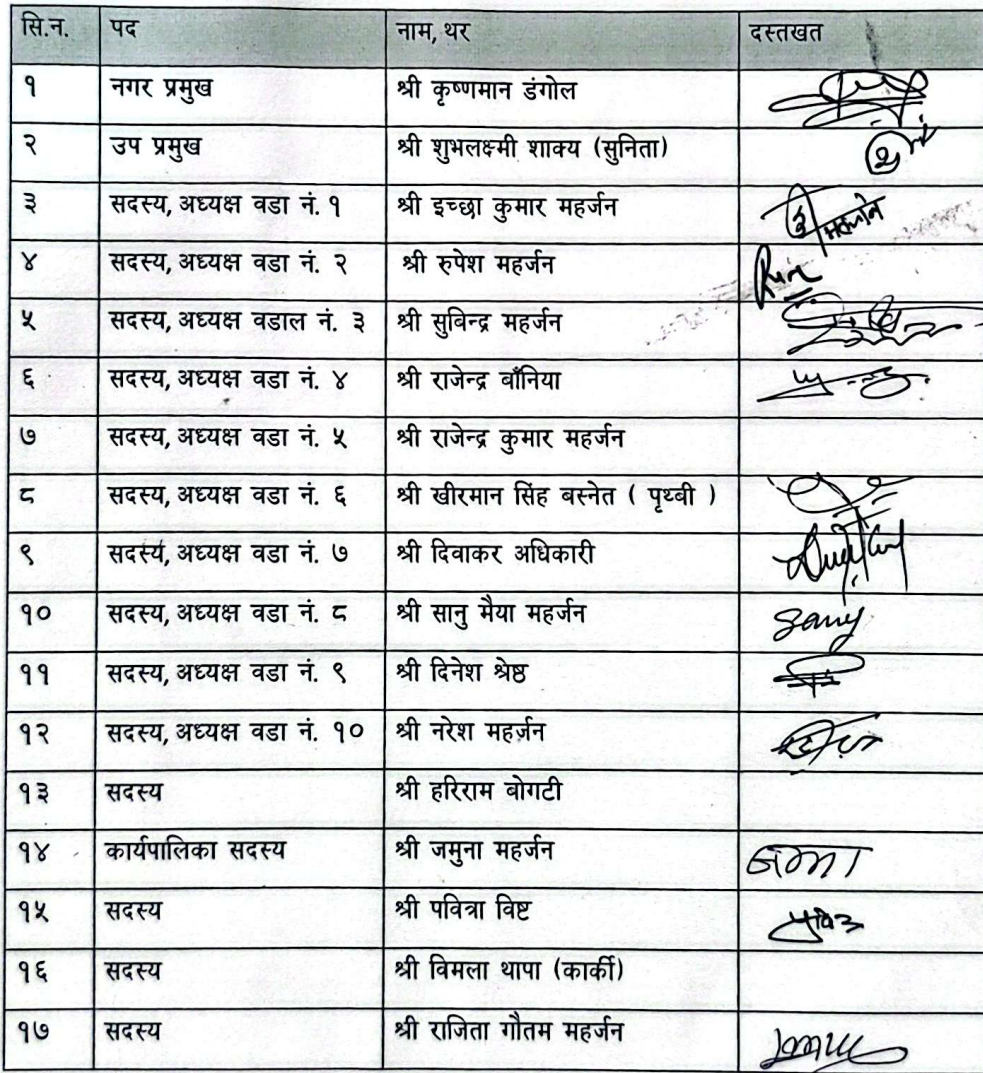 सि.न. पद नाम, थर दस्तखत
१ नगर प्रमुख श्री कृष्णमान डंगोल
२ उप प्रमुख श्री शुभलक्ष्मी शाक्य (सुनिता)
३ सदस्य, अध्यक्ष वडा नं. १ श्री इच्छा कुमार महर्जन
४ सदस्य, अध्यक्ष वडा नं. २ श्री रुपेश महर्जन
५ सदस्य, अध्यक्ष वडाल नं. ३ श्री सुबिन्द्र महर्जन
६ सदस्य, अध्यक्ष वडा नं. ४ श्री राजेन्द्र बाँनिया
७ सदस्य, अध्यक्ष वडा नं. ५ श्री राजेन्द्र कुमार महर्जन
८ सदस्य, अध्यक्ष वडा नं. ६ श्री खीरमान सिंह बस्नेत ( पृथ्बी )
९ सदस्य, अध्यक्ष वडा नं. ७ श्री दिवाकर अधिकारी
१० सदस्य, अध्यक्ष वडा नं. ८ श्री सानु मैया महर्जन
११ सदस्य, अध्यक्ष वडा नं. ९ श्री दिनेश श्रेष्ठ
१२ सदस्य, अध्यक्ष वडा नं. १० श्री नरेश महर्ज़न
१३ सदस्य श्री हरिराम बोगटी
१४ कार्यपालिका सदस्य श्री जमुना महर्जन
१५ सदस्य श्री पवित्रा विष्ट
१६ सदस्य श्री विमला थापा (कार्की)
१७ सदस्य श्री राजिता गौतम महर्जन